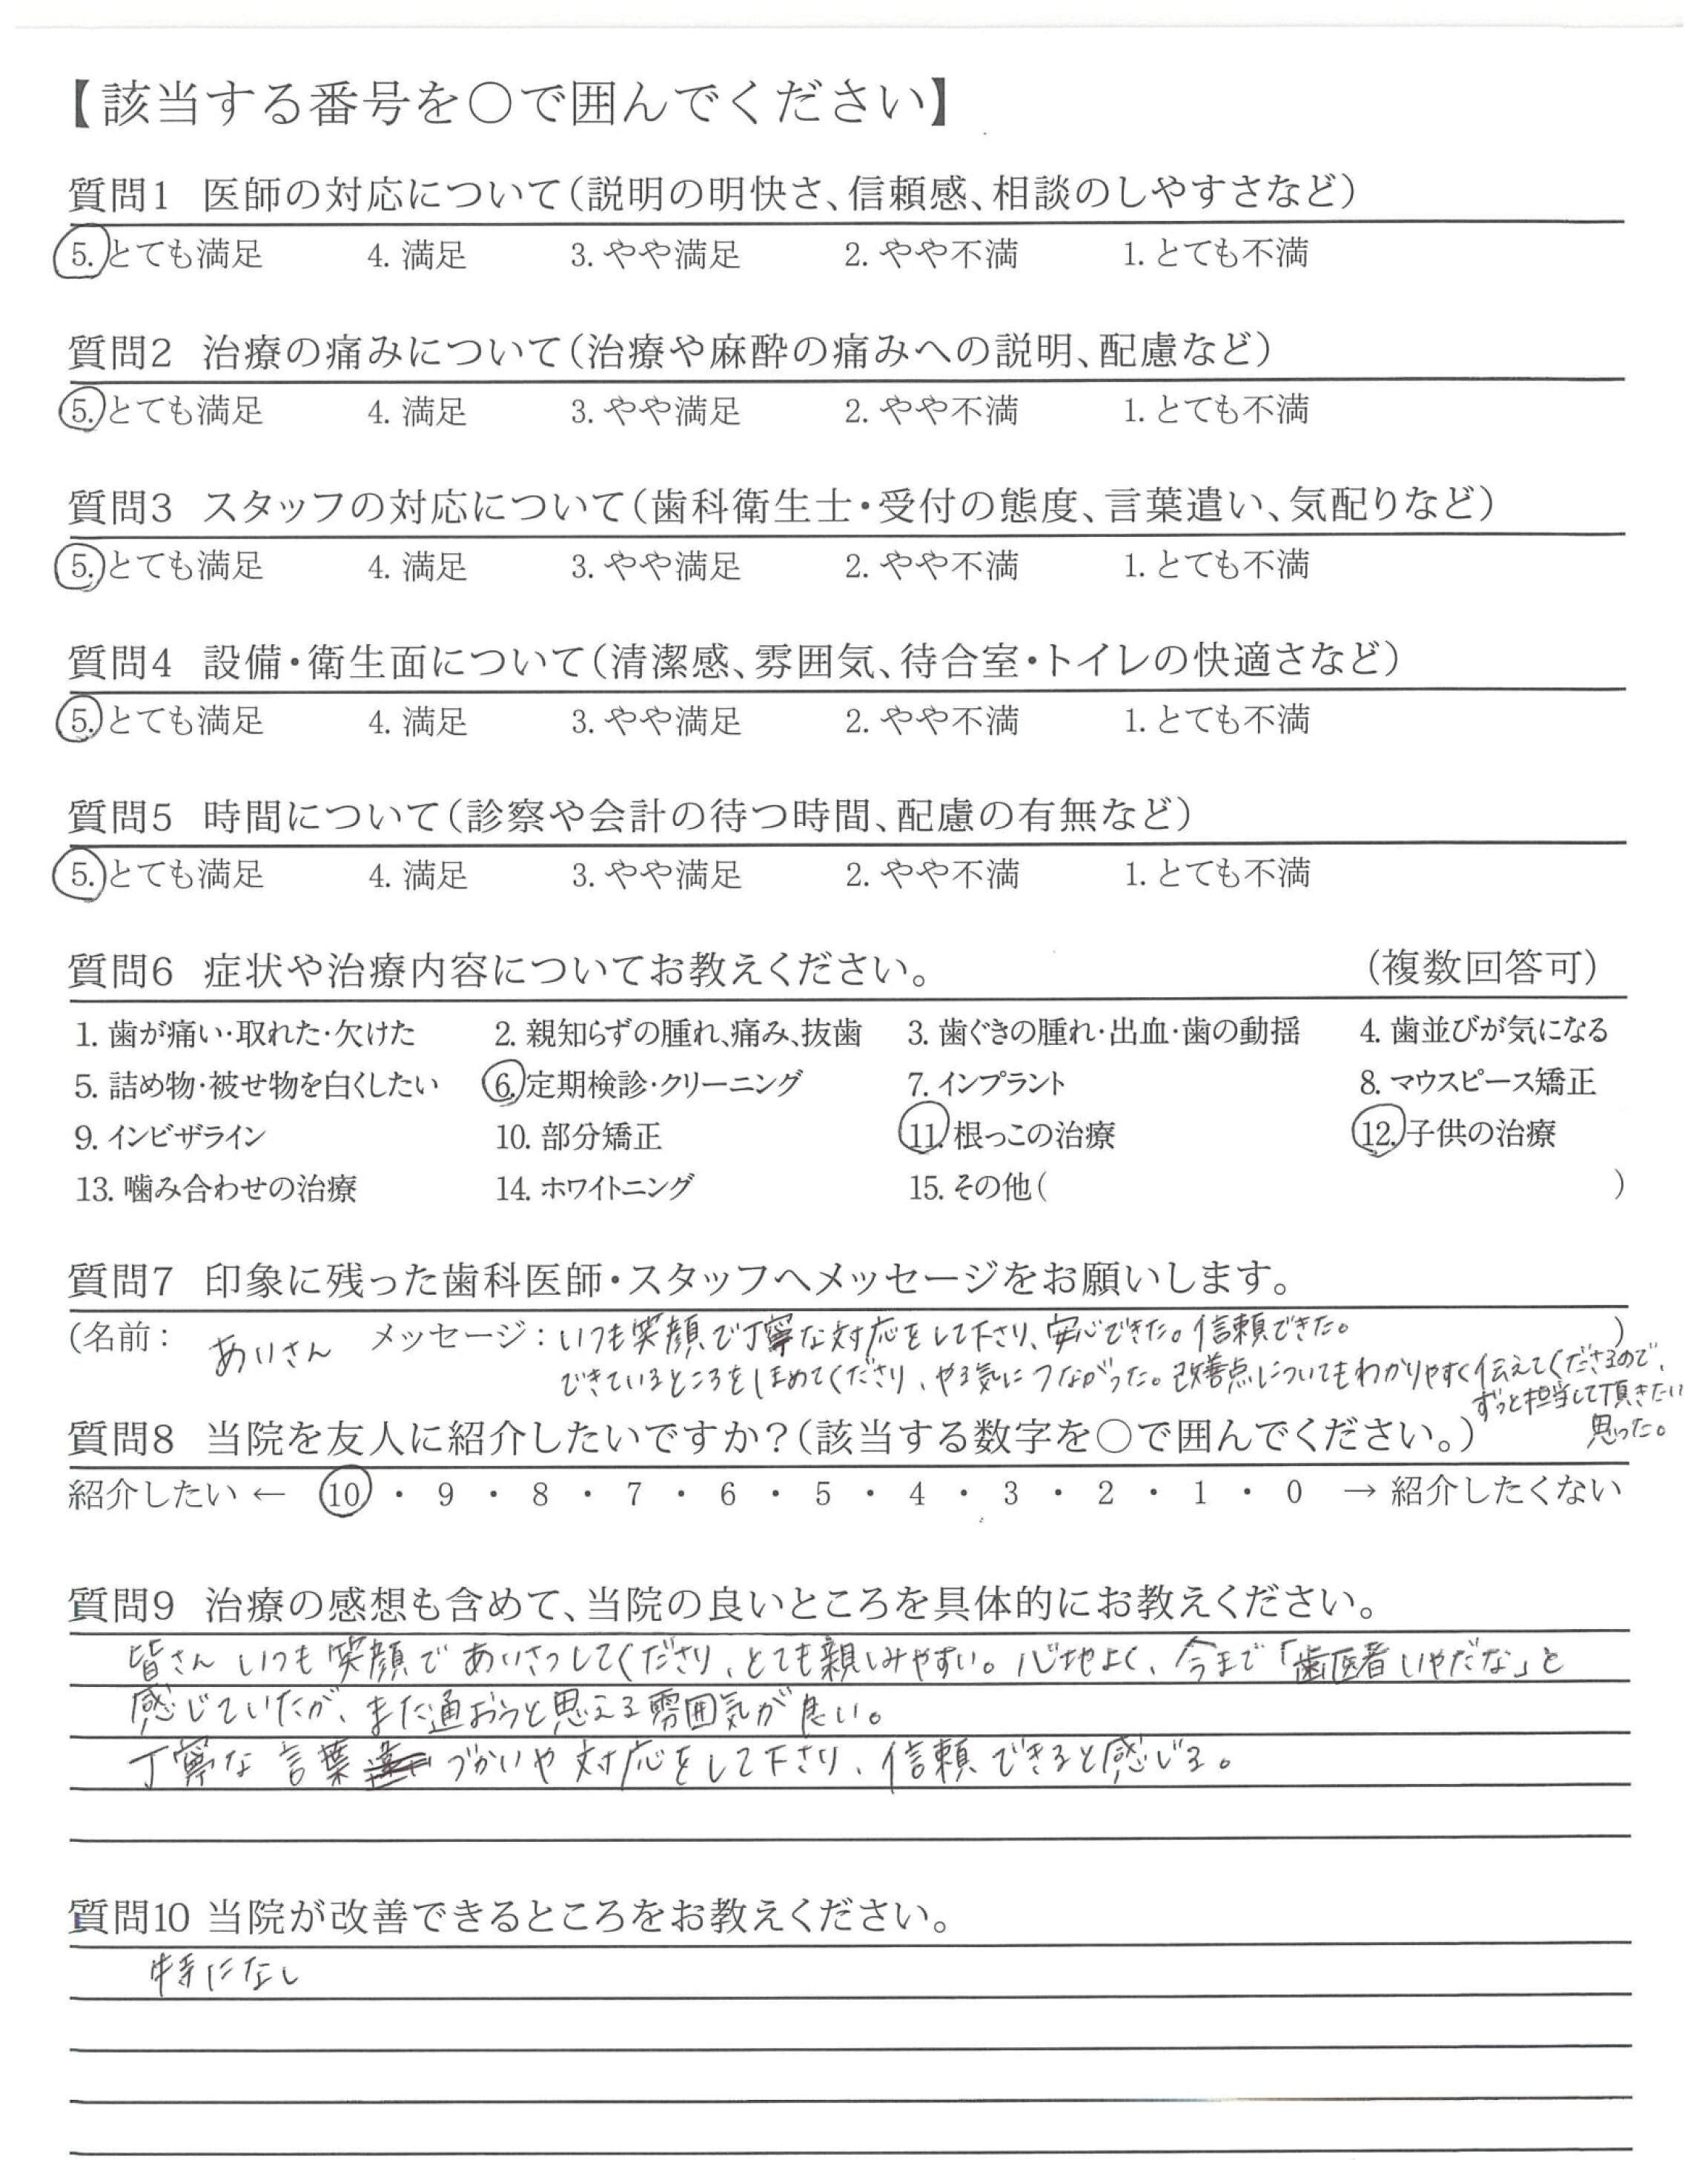 【該当する番号を○で囲んでください】
質問1 医師の対応について(説明の明快さ、信頼感、相談のしやすさなど)
5. とても満足 4. 満足 3. やや満足 2. やや不満 1. とても不満
質問2 治療の痛みについて(治療や麻酔の痛みへの説明、配慮など)
5. とても満足 4. 満足 3. やや満足 2. やや不満 1. とても不満
質問3 スタッフの対応について(歯科衛生士・受付の態度、言葉遣い、気配りなど)
5. とても満足 4. 満足 3. やや満足 2. やや不満 1. とても不満
質問4 設備・衛生面について(清潔感、雰囲気、待合室・トイレの快適さなど)
5. とても満足 4. 満足 3. やや満足 2. やや不満 1. とても不満
質問5 時間について(診察や会計の待つ時間、配慮の有無など)
5. とても満足 4. 満足 3. やや満足 2. やや不満 1. とても不満
質問6 症状や治療内容についてお教えください。 (複数回答可)
1. 歯が痛い・取れた・欠けた 2. 親知らずの腫れ、痛み、抜歯 3. 歯ぐきの腫れ・出血・歯の動揺 4. 歯並びが気になる
5. 詰め物・被せ物を白くしたい 6. 定期検診・クリーニング 7. インプラント 8. マウスピース矯正
9. インビザライン 10. 部分矯正 11. 根っこの治療 12. 子供の治療
13. 噛み合わせの治療 14. ホワイトニング 15. その他( )
質問7 印象に残った歯科医師・スタッフへメッセージをお願いします。
(名前: あいさん メッセージ: いつも笑顔で丁寧な対応をして下さり、安心できた。信頼できた。 )
できているところをほめてくださり、やる気につながった。改善点についてもわかりやすく伝えてくださるので、
ずっと担当して頂きたい
思った。
質問8 当院を友人に紹介したいですか?(該当する数字を○で囲んでください。)
紹介したい ← 10 ・ 9 ・ 8 ・ 7 ・ 6 ・ 5 ・ 4 ・ 3 ・ 2 ・ 1 ・ 0 → 紹介したくない
質問9 治療の感想も含めて、当院の良いところを具体的にお教えください。
皆さん いつも笑顔であいさつしてくださり、とても親しみやすい。心地よく、今まで「歯医者いやだな」と
感じていたが、また通おうと思える雰囲気が良い。
丁寧な言葉づかいや対応をして下さり、信頼できると感じる。
質問10 当院が改善できるところをお教えください。
特になし